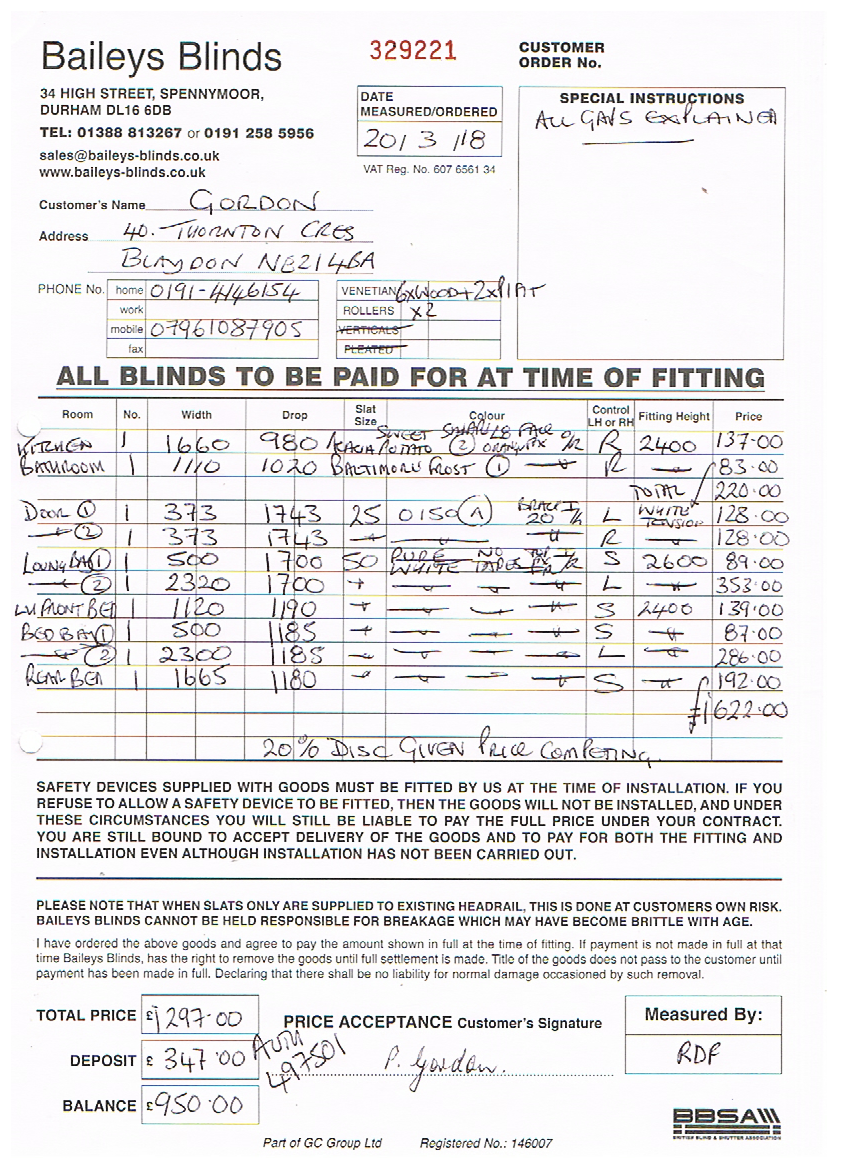 Baileys Blinds
329221
CUSTOMER
ORDER No.
34 HIGH STREET, SPENNYMOOR,
DURHAM DL16 6DB
TEL: 01388 813267 or 0191 258 5956
sales@baileys-blinds.co.uk
www.baileys-blinds.co.uk
DATE
MEASURED/ORDERED
20/3/18
VAT Reg. No. 607 6561 34
SPECIAL INSTRUCTIONS
ALL GAPS EXPLAINED
Customer's Name GORDON
Address 40. THORNTON CRES
BLAYDON NE21 4BA
PHONE No. home 0191-4146154
work
mobile 07961087905
fax
VENETIAN 6xWOOD+2x
ROLLERS x2
VERTICALS
PLEATED
ALL BLINDS TO BE PAID FOR AT TIME OF FITTING
Room No. Width Drop Slat Size Colour Control LH or RH Fitting Height Price
KITCHEN 1 1660 980 SWEET POTATO (2) O/R R 2400 137.00
BATHROOM 1 1110 1020 BALTIMORE FROST (1) R 83.00
TOTAL 220.00
DOOR (1) 1 373 1743 25 0150 (A) L WHITE TENSION 128.00
(2) 1 373 1743 R 128.00
LOUNG BAY(1) 1 500 1700 50 PURE WHITE NO TAPES S 2600 89.00
(2) 1 2320 1700 L 353.00
FRONT BED 1 1120 1190 S 2400 139.00
BED BAY(1) 1 500 1185 S 87.00
(2) 1 2300 1185 L 286.00
REAR BED 1 1665 1180 S 192.00
£1622.00
20% DISC GIVEN PRICE COMPETING
SAFETY DEVICES SUPPLIED WITH GOODS MUST BE FITTED BY US AT THE TIME OF INSTALLATION. IF YOU
REFUSE TO ALLOW A SAFETY DEVICE TO BE FITTED, THEN THE GOODS WILL NOT BE INSTALLED, AND UNDER
THESE CIRCUMSTANCES YOU WILL STILL BE LIABLE TO PAY THE FULL PRICE UNDER YOUR CONTRACT.
YOU ARE STILL BOUND TO ACCEPT DELIVERY OF THE GOODS AND TO PAY FOR BOTH THE FITTING AND
INSTALLATION EVEN ALTHOUGH INSTALLATION HAS NOT BEEN CARRIED OUT.
PLEASE NOTE THAT WHEN SLATS ONLY ARE SUPPLIED TO EXISTING HEADRAIL, THIS IS DONE AT CUSTOMERS OWN RISK.
BAILEYS BLINDS CANNOT BE HELD RESPONSIBLE FOR BREAKAGE WHICH MAY HAVE BECOME BRITTLE WITH AGE.
I have ordered the above goods and agree to pay the amount shown in full at the time of fitting. If payment is not made in full at that
time Baileys Blinds, has the right to remove the goods until full settlement is made. Title of the goods does not pass to the customer until
payment has been made in full. Declaring that there shall be no liability for normal damage occasioned by such removal.
TOTAL PRICE £1297.00
DEPOSIT £ 347.00
BALANCE £950.00
AUTH
497501
PRICE ACCEPTANCE Customer's Signature
P. Gordon.
Measured By:
RDF
BBSA
BRITISH BLIND & SHUTTER ASSOCIATION
Part of GC Group Ltd Registered No.: 146007